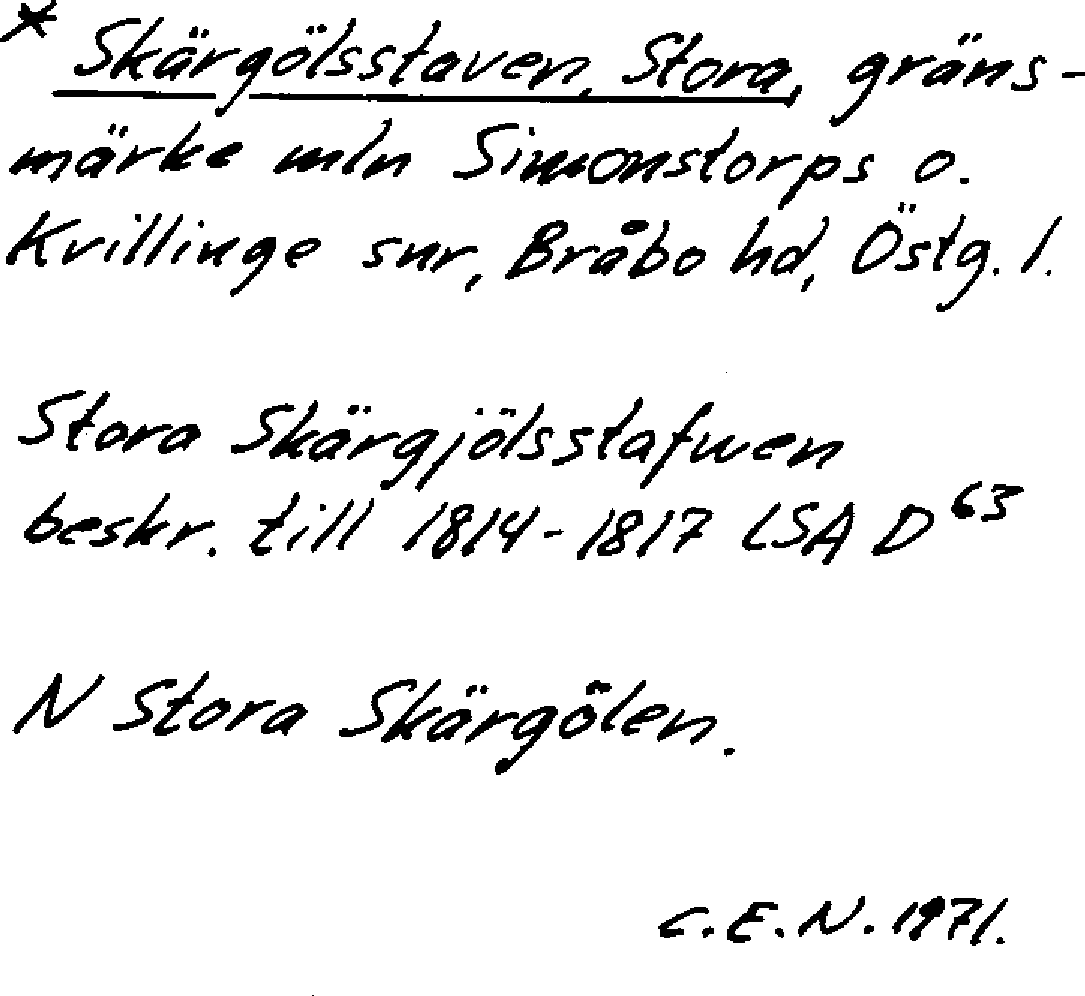 * Skärgölsstaven, Stora, gräns-
märke mln Simonstorps o.
Kvillinge snr, Bråbo hd, Östg. l.
Stora Skärgjölsstafwen
beskr. till 1814-1817 LSA D63
N Stora Skärgölen.
C.E.N. 1971.